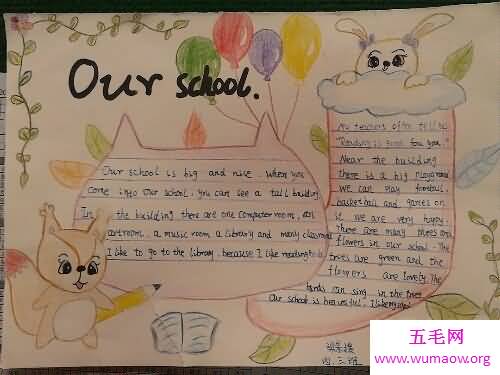 Our school.
Our school is big and nice. When you
come into our school, you can see a tall building
In the building there are one computer room, an
artroom, a music room a library and many classroom
I like to go to the library, because I like reading books
My teachers often tell me
"Reading is good for you."
Near the building
there is a big playground
we can play football,
basketball and games on
it we are very happy.
There are many trees and
flowers in our school. The
trees are green and the
flowers are lovely. The
birds can sing in the tree
Our school is beautiful. I like my school
四、三班
五毛网
www.wumaow.org